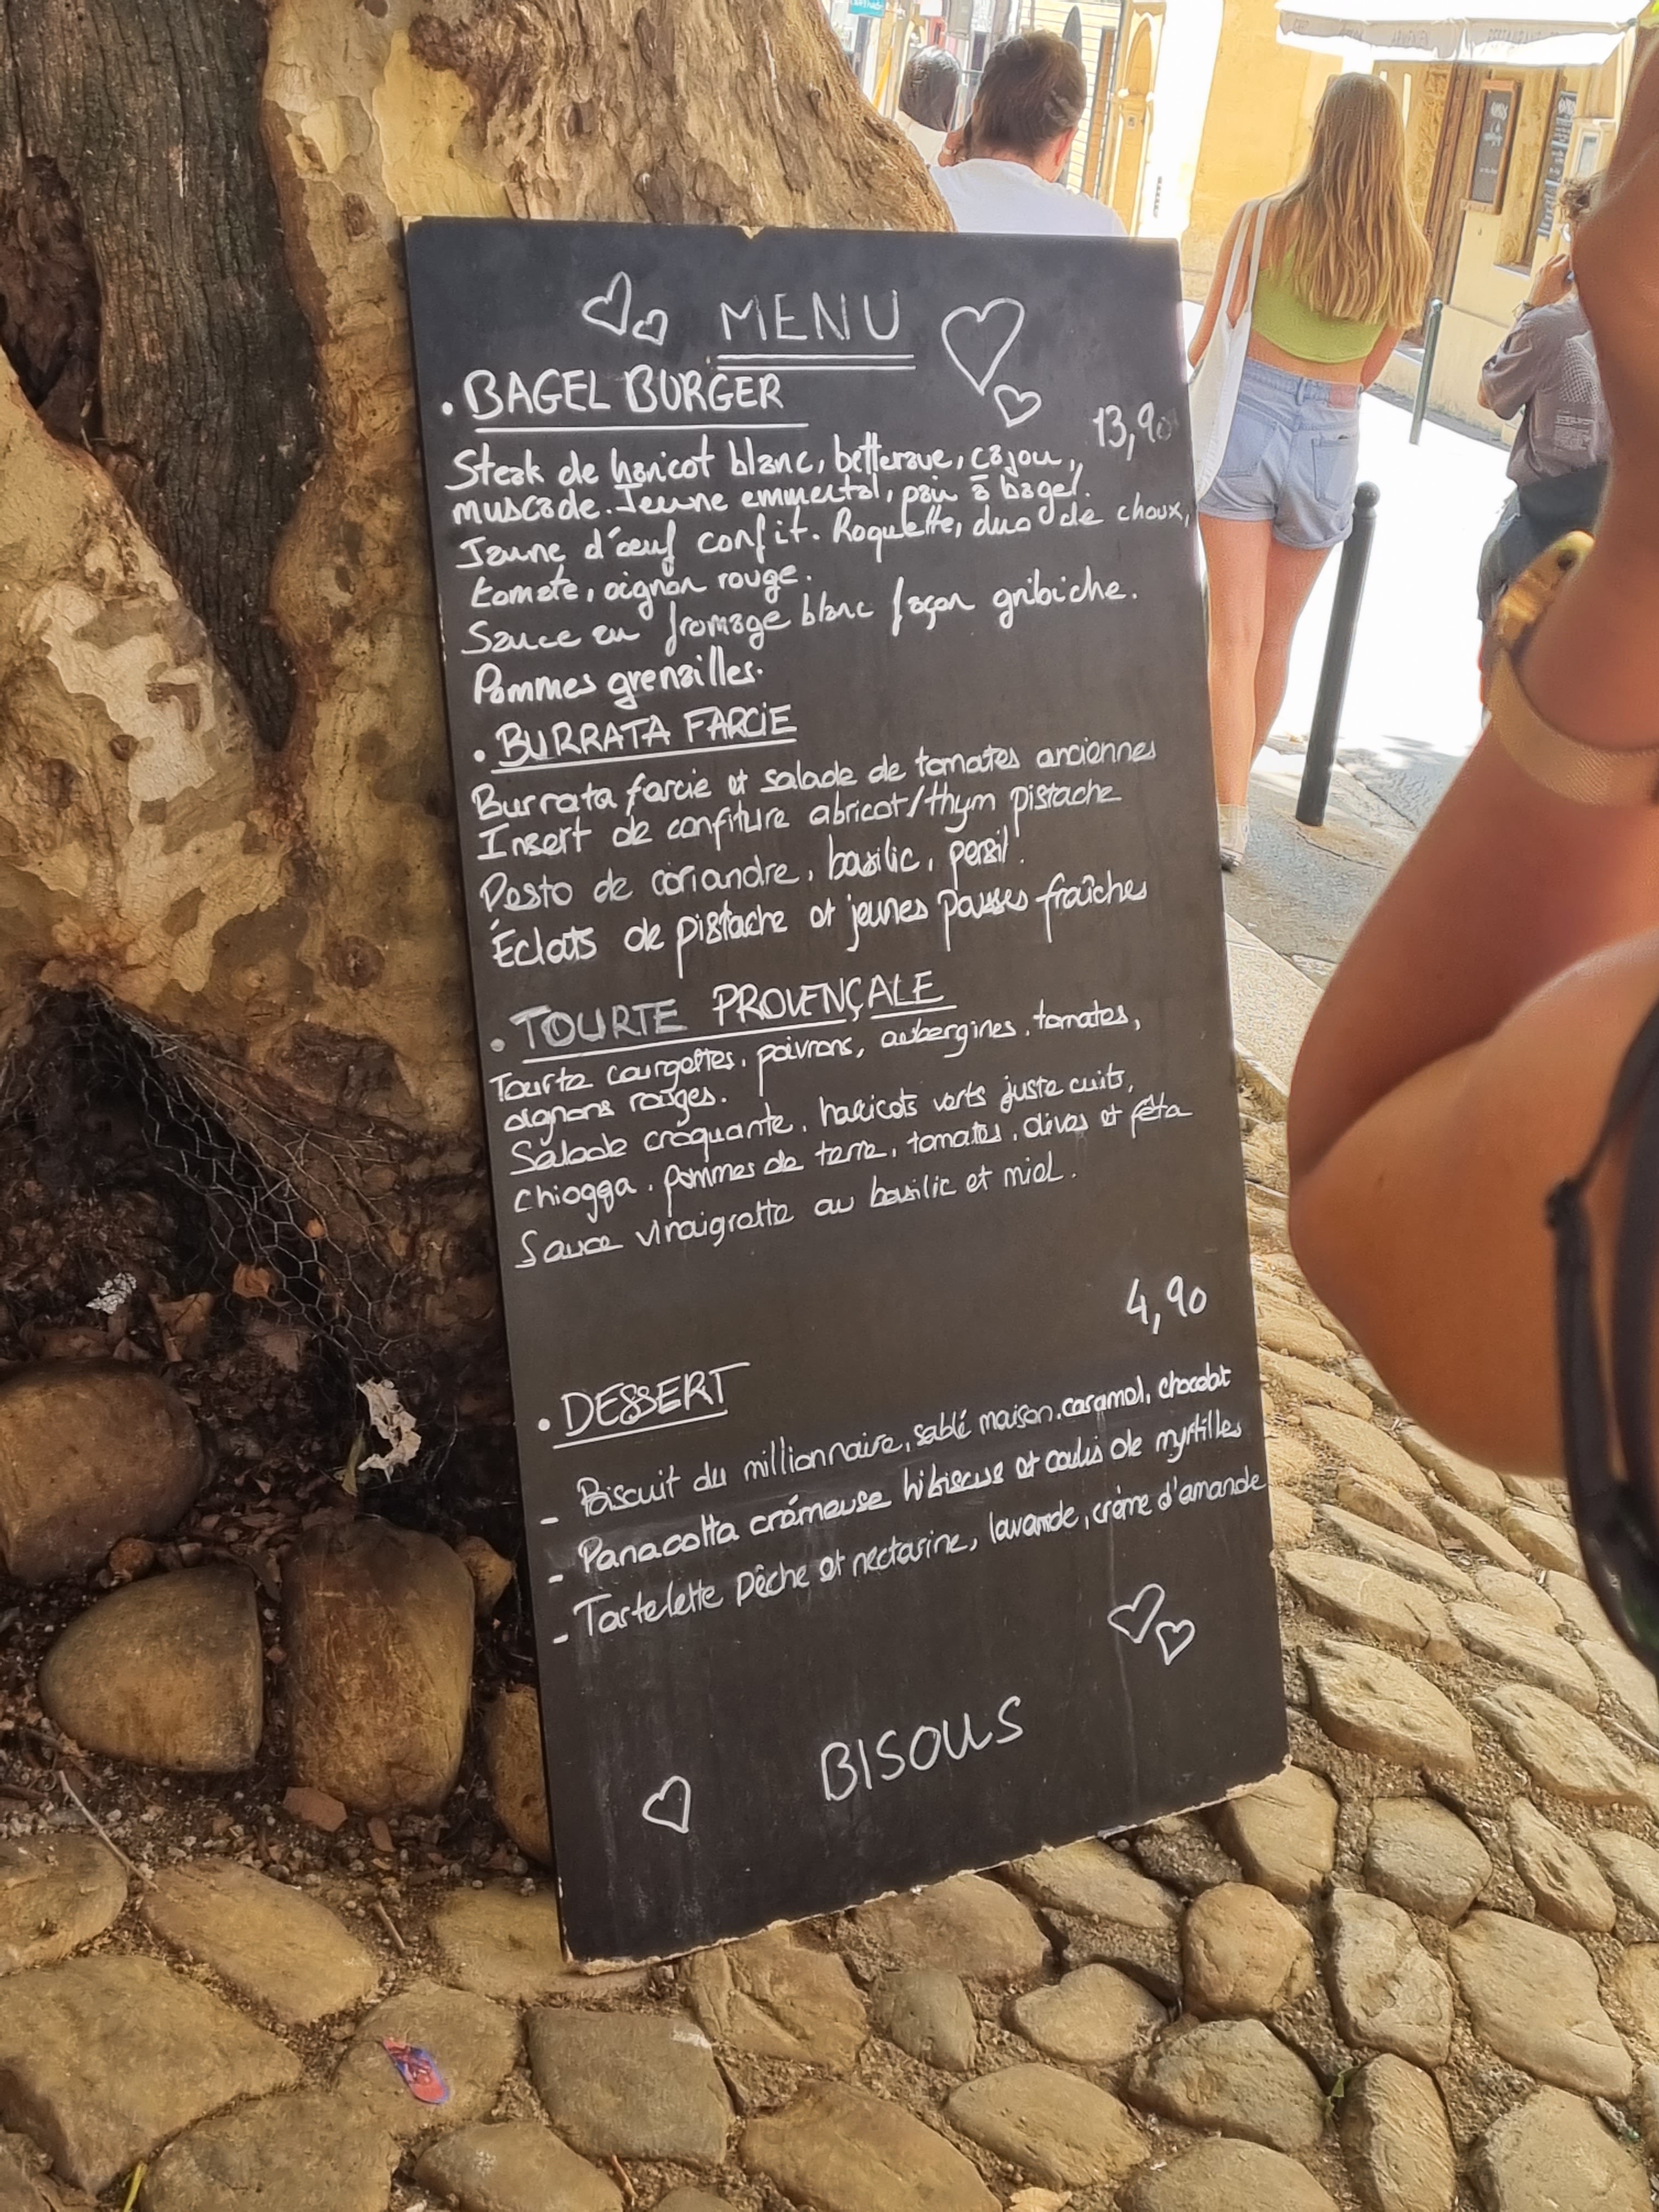 MENU
. BAGEL BURGER
13,90
Steak de haricot blanc, betterave, cajou,
muscade. Jeune emmental, pain à bagel.
Jaune d'œuf confit. Roquette, duo de choux,
tomate, oignon rouge.
Sauce au fromage blanc façon gribiche.
Pommes grenailles.
. BURRATA FARCIE
Burrata farcie et salade de tomates anciennes
Insert de confiture abricot/thym pistache
Pesto de coriandre, basilic, persil.
Éclats de pistache et jeunes pousses fraîches
. TOURTE PROVENÇALE
Tourte courgettes, poivrons, aubergines, tomates,
oignons rouges.
Salade croquante, haricots verts juste cuits,
chiogga, pommes de terre, tomates, olives et fêta
Sauce vinaigrette au basilic et miel.
4,90
. DESSERT
- Biscuit du millionnaire, sablé maison, caramel, chocolat
- Panacotta crémeuse hibiscus et coulis de myrtilles
- Tartelette pêche et nectarine, lavande, crème d'amande
BISOUS